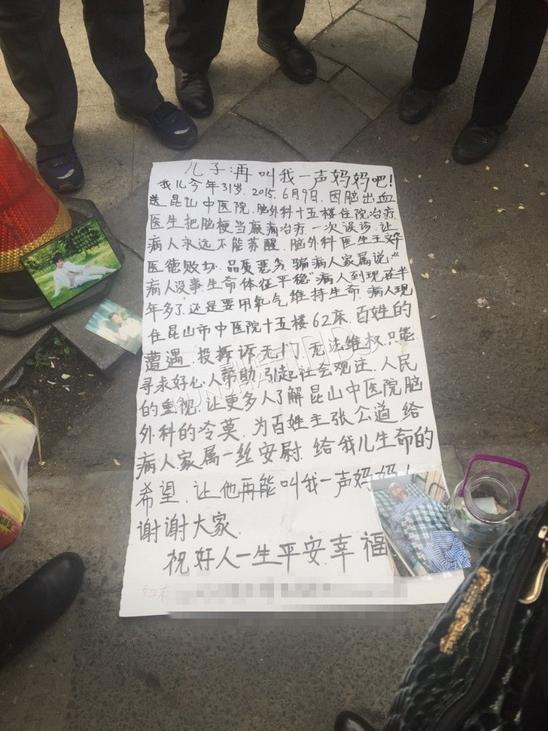 儿子再叫我一声妈妈吧!
我儿今年31岁.2015.6月9日.因脑出血
送昆山中医院.脑外科十五楼住院治疗.
医生把脑梗当癫痫治疗.一次误诊.让
病人永远不能苏醒.脑外科医生王
医德败坏.品质恶劣骗病人家属说:"
病人没事生命体征平稳"病人到现在半
年多了.还是要用氧气维持生命.病人现
住昆山市中医院十五楼62床.百姓的
遭遇.投拆诉无门.无法维权.只能
寻求好心人帮助.引起社会观注.人民
的重视.让更多人了解昆山中医院脑
外科的冷莫.为百姓主张公道.给
病人家属一丝安尉.给我儿生命的
希望.让他再能叫我一声妈妈!
谢谢大家.
祝好人一生平安.幸福